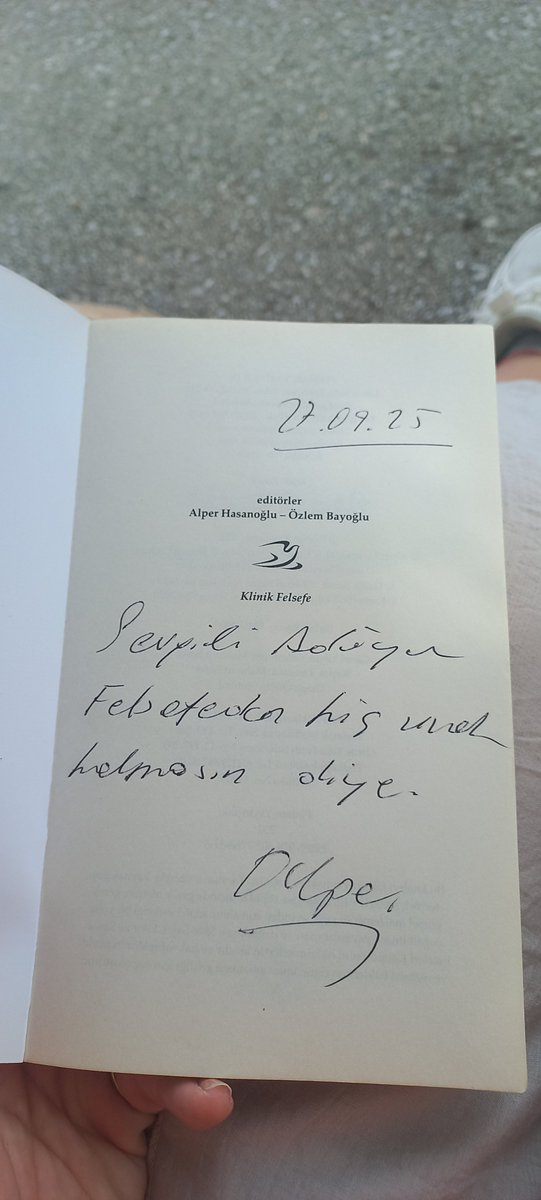 27.09.25
editörler
Alper Hasanoğlu – Özlem Bayoğlu
Klinik Felsefe
Sevgili
Felsefeden hiç uzak
kalmasın diye.
Alper